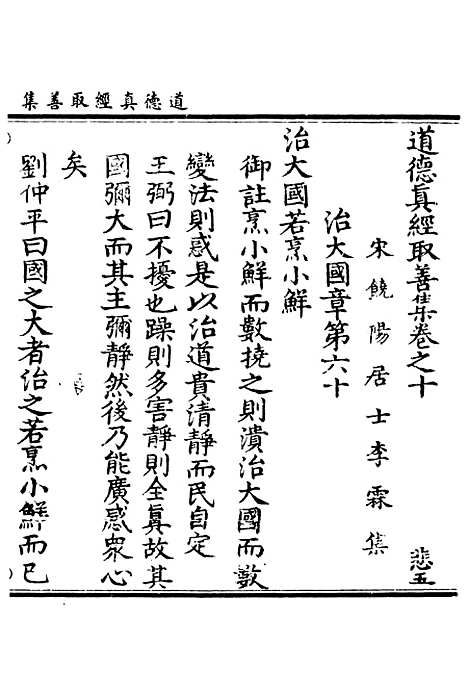 道德真經取善集
道德真經取善集卷之十
悲五
宋饒陽居士李霖集
治大國章第六十
治大國若烹小鮮
御註烹小鮮而數撓之則潰治大國而數
變法則惑是以治道貴清靜而民自定
王弼曰不擾也躁則多害靜則全眞故其
國彌大而其主彌靜然後乃能廣感衆心
矣
劉仲平曰國之大者治之若烹小鮮而已